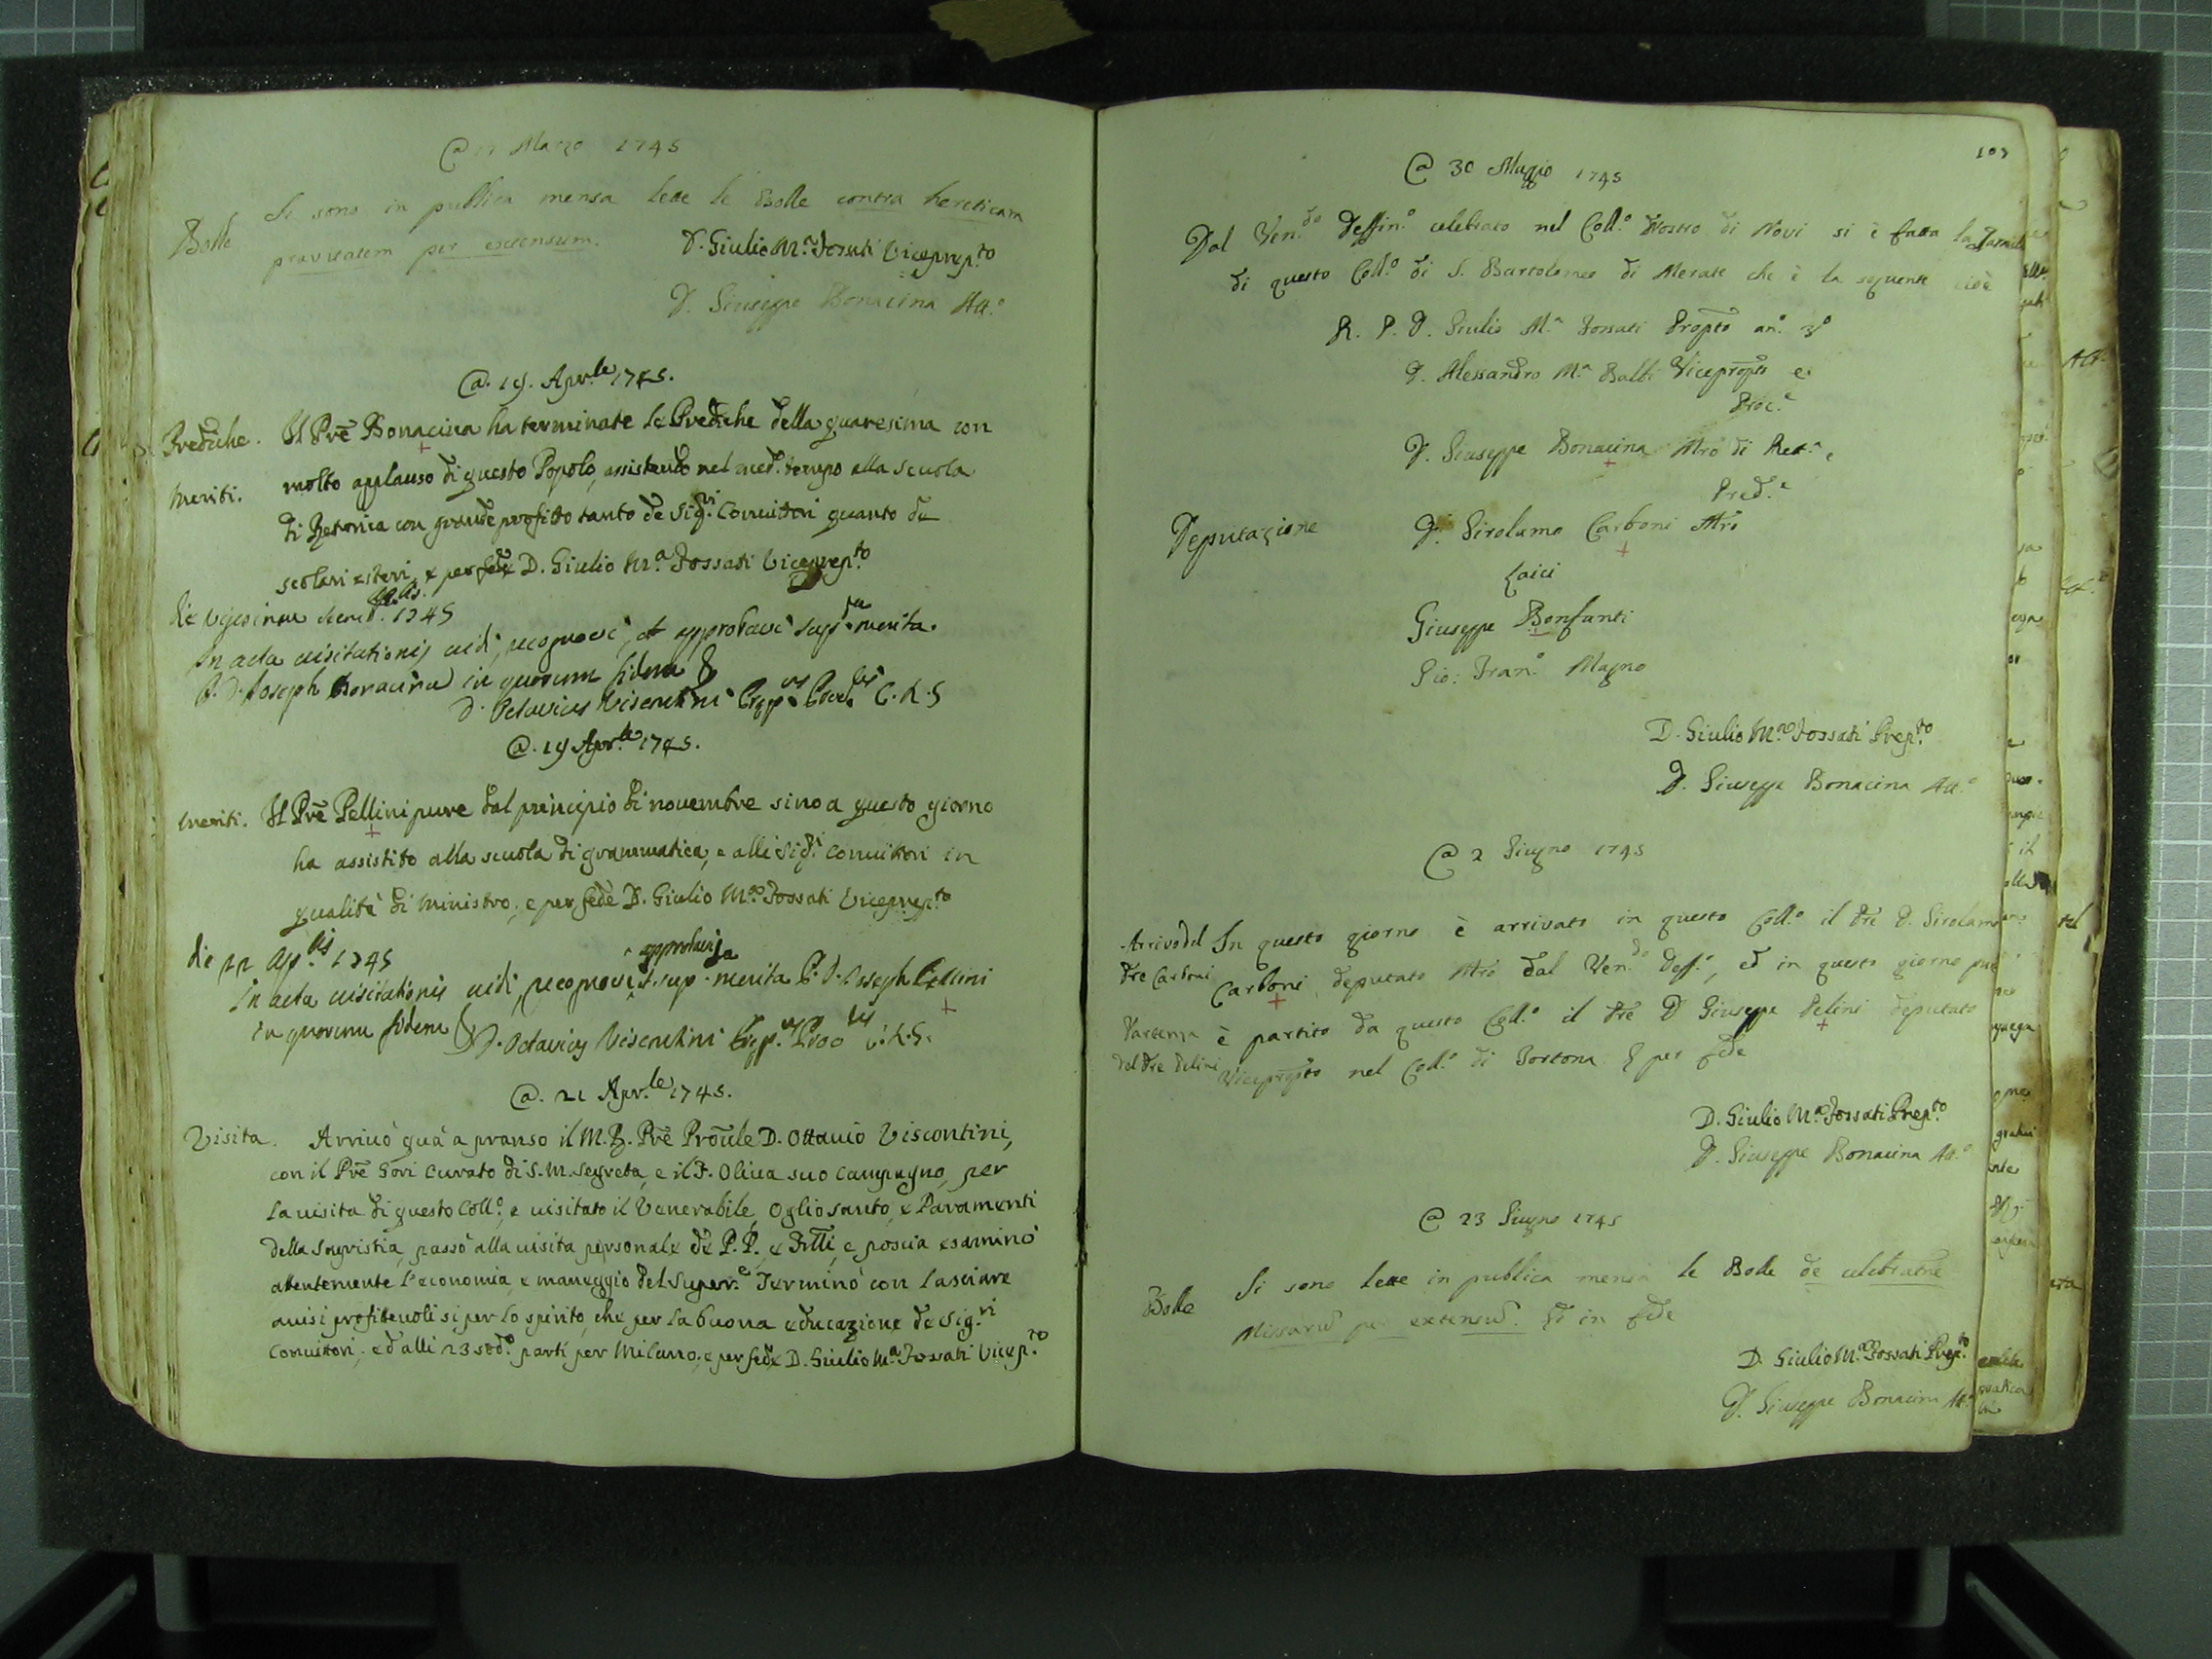 @ Marzo 1745
Bolle Si sono in publica mensa lette le Bolle contra hereticam
pravitatem per extensum. D. Giulio M.a Fossati Viceprep.to
D. Giuseppe Bonacina Att.o
@. 19. Apr.le 1745.
Prediche. Il Prē Bonacina ha terminate le Prediche della quaresima con
meriti. molto applauso di questo Popolo, assistendo nel med.o tempo alla scuola
di Retorica con grande profitto tanto de Sig.ri Convittori quanto de
scolari esteri, e per fede D. Giulio M.a Fossati Viceprep.to
die vigesima secund. Ap.lis 1745
In acta visitationis vidi, recognovi, et approbavi sup.ta merita
P. D. Joseph Bonacina in quorum fidem &
D. Octavius Viscontini Prep.us Prov.lis C.R.S
@. 19 Apr.le 1745.
meriti. Il Prē Pellini pure dal principio di novembre sino a questo giorno
ha assistito alla scuola di grammatica, e alli Sig.ri Convittori in
qualità di Ministro, e per fede D. Giulio M.a Fossati Viceprep.to
die 22 Ap.lis 1745
approbavi
In acta visitationis vidi, recognovi, et sup.ta merita P. D. Joseph Pellini
in quorum fidem & D. Octavius Viscontini Prep.us Pro.lis C.R.S.
@. 21 Apr.le 1745.
Visita. Arrivò quà a pranso il M.R. Prē Prōule D. Ottavio Viscontini,
con il Prē Gori Curato di S.M. Segreta, e il F. Oliva suo Compagno, per
la visita di questo Coll.o, e visitato il Venerabile, Oglio santo, e Paramenti
della Sagristia, passò alla visita personale de P.P. e Frlli, e poscia esaminò
attentemente l'economia, e maneggio del Super.e Terminò con lasciare
avisi profitevoli si per lo spirito, che per la buona educazione de Sig.ri
Convittori, ed alli 23 sod.o partì per Milano; e per fede D. Giulio M.a Fossati Vicep.to
103
@ 30 Maggio 1745
Dal Ven.do Deffin.o celebrato nel Coll.o Nostro di Novi si è fatta la
di questo Coll.o di S. Bartolomeo di Merate che è la seguente cioè
R. P. D. Giulio M.a Fossati Propto an.o 3.o
D. Alessandro M.a Balbi Vicepropto e
Proc.e
D. Giuseppe Bonacina Mrō di Ret.a e
Pred.e
Deputazione D. Girolamo Carboni Mrō
Laici
Giuseppe Bonfanti
Gio: Fran.o Magno
D. Giulio M.a Fossati Prep.to
D. Giuseppe Bonacina Att.o
@ 2 Giugno 1745
Arrivo del In questo giorno è arrivato in questo Coll.o il Prē D. Girolamo
Prē Carboni Carboni deputato Mrō dal Ven.do Deff.o, ed in questo giorno pure
Partenza è partito da questo Coll.o il Prē D Giuseppe Pelini deputato
del Prē Pelini Vicepropto nel Coll.o di Tortona E per fede
D. Giulio M.a Fossati Prep.to
D. Giuseppe Bonacina Att.o
@ 23 Giugno 1745
Bolle Si sono lette in publica mensa le Bolle de celebratne
Missarū per extensū. Ed in fede
D. Giulio M.a Fossati Prep.to
D. Giuseppe Bonacina Att.o